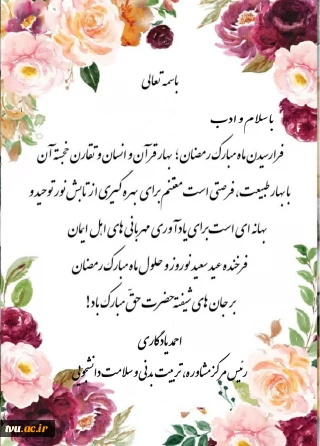 باسمه تعالی
با سلام و ادب
فرارسیدن ماه مبارک رمضان؛ بهار قرآن و انسان و تقارن خجسته آن
با بهار طبیعت، فرصتی است مغتنم برای بهره گیری از تابش نور توحید و
بهانه ای است برای یادآوری مهربانی های اهل ایمان
فرخنده عید سعید نوروز و حلول ماه مبارک رمضان
بر جان های شیفته حضرت حق مبارک باد!
احمد یادگاری
رئیس مرکز مشاوره، تربیت بدنی و سلامت دانشجویی
tvu.ac.ir